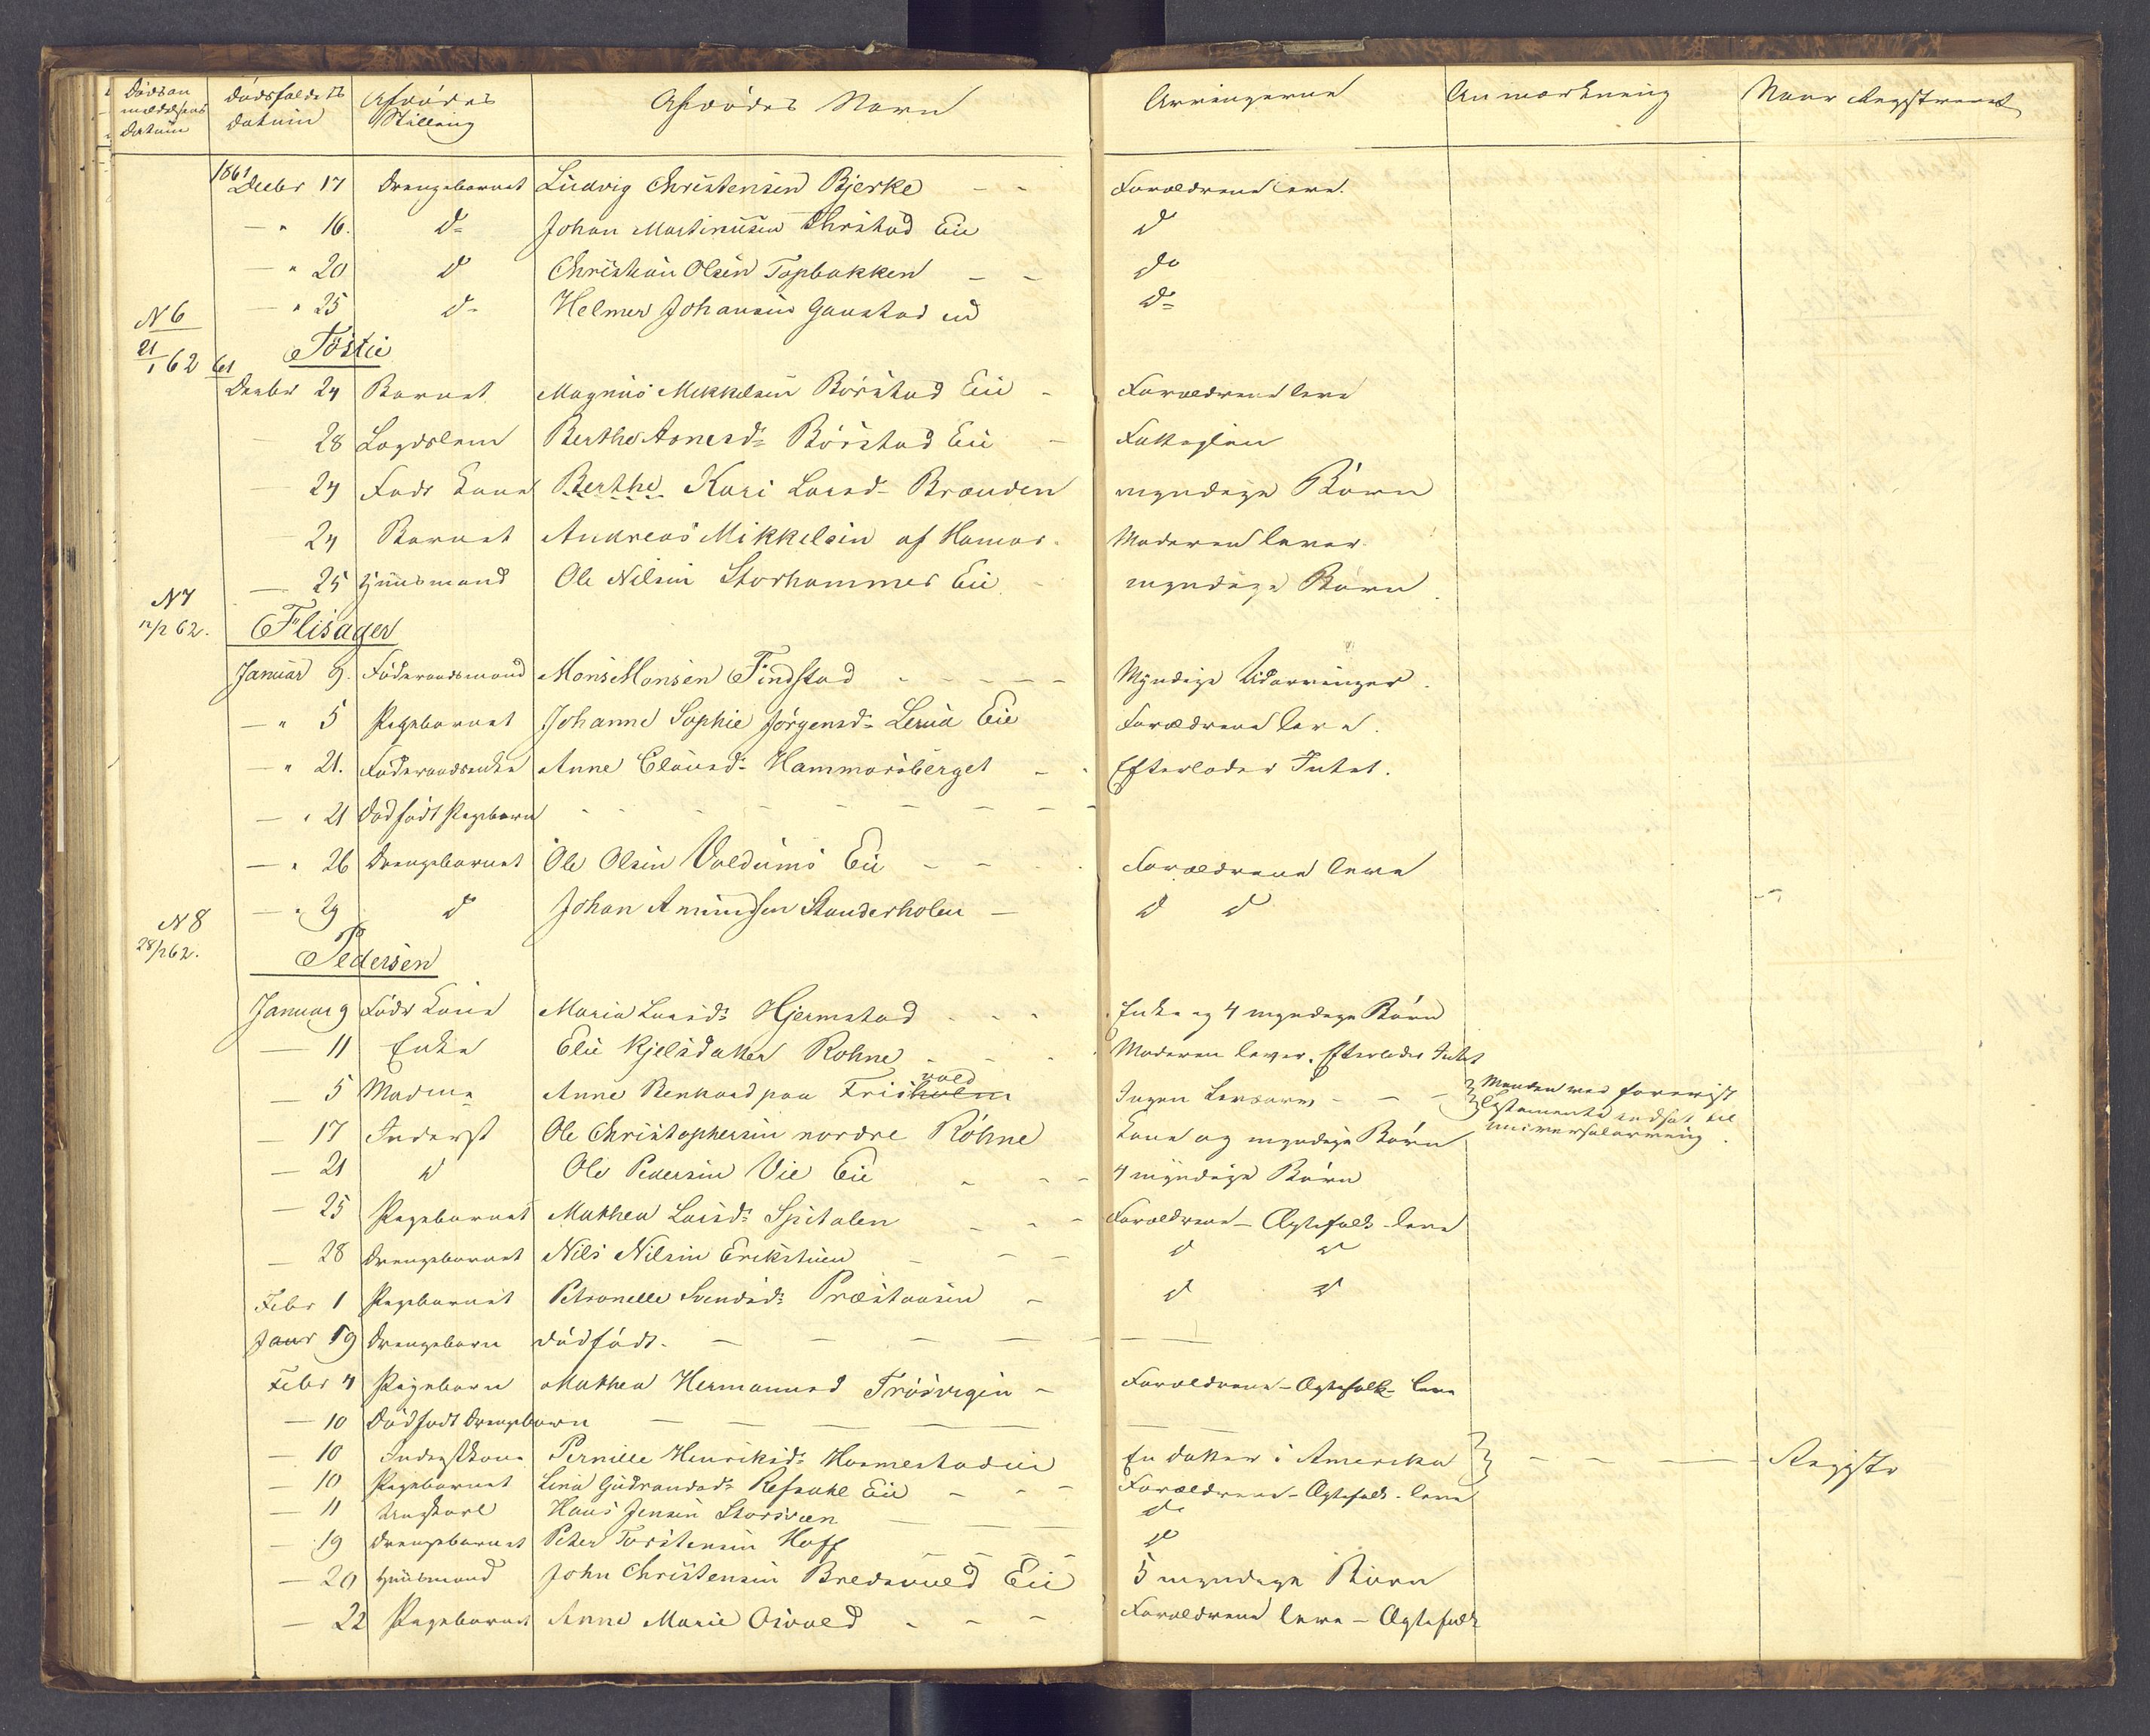 Dødsan
meldelsens
Datum
Dødsfaldets
Datum
Afdødes
Stilling
Afdødes Navn
Arvingerne
Anmærkning
Naar Registreret
1861
Decbr 17 Drengebarnet Ludvig Christensen Bjerke - - Forældrene leve.
— " 16. do Johan Martinusen Eie do
— " 20 do Christian Olsen Topbakken - - do
— " 25 do Helmer Johansen Gaustad do
N 6
21/1 62 Tøstie
61
Decbr 24 Barnet Magnus Mikkelsen Børstad Eie - Forældrene leve
28 Lægdslem Berthe Arnesd: Børstad Eie - Fattiglem
— 24 Føder Kone Berthe Kari Larsd- Brænden myndige Børn
24 Barnet Andreas Mikkelsen af Hamar. Moderen lever.
— 25 Huusmand Ole Nilsen Storhammer Eie myndige Børn
N 7
12/2 62. Flisager
Januar 9. Føderaadsmand Mons Monsen Findstad - - - - Myndige Udarvinger.
— " 5 Pigebarnet Johanne Sophie Jørgensd: Eie Forældrene leve.
— " 21. Føderaadsenke Anne Clausd: Hammarsberget - - Efterlader Intet.
— " 21 Dødfødt Pigebarn - - - - - -
— " 26 Drengebarnet Ole Olsen Voldums Eie - - Forældrene leve
— " 29 do Johan Amundsen Stenderholen - do do
N 8
28/2 62. Pedersen
Januar 9 Føder Kone Maria Larsd: Hjermstad - - - Enke og 4 myndige Børn
— 11 Enke Elie Kjelsdatter Rohne - - - Moderen lever. Efterlader Intet
— 5 Madme Anne Benhard paa Frisholm vold Ingen Livsarv. - - - Manden ved forevist
Testamente indsat til
universalarving.
— 17 Inderst Ole Christophersen nordre Röhne Kone og myndige Børn
— 21 do Ole Pedersen Vie Eie - - - 4 myndige Børn
— 25 Pigebarnet Mathea Larsd: Spitalen - - - Forældrene - Ægtefolk - leve
— 28 Drengebarnet Nils Nilsen Erikstuen - - - do do
Febr 1 Pigebarnet Petronelle Svendsd: Præstaasen - do do
Janr 19 Drengebarn dödfödt. — — — — —
Febr 4 Pigebarn Mathea Hermansd - Forældrene - Ægtefolk leve
— 10 Dødfødt Drengebarn — — — —
— 10 Inderstkone Pernille Henriksd: En datter i Amerika - - - — Registr
— 10 Pigebarnet Lina Gudbrandsd: Eie - - - Forældrene - Ægtefolk - leve
— 11 Ungkarl Hans Jensen Storsveen - - - do
— 19 Drengebarnet Peter Torstensen Hoff - - - - do
— 20 Huusmand John Christensen Eie 5 myndige Børn
— 22 Pigebarnet Anne Marie Osvold - - - Forældrene leve - Ægtefolk